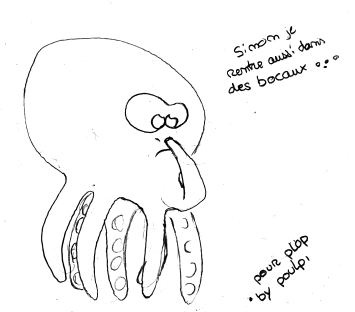 Simon je
rentre aussi dans
des bocaux ...
pour plop
by poulpi